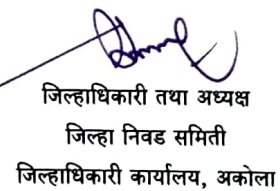 जिल्हाधिकारी तथा अध्यक्ष
जिल्हा निवड समिती
जिल्हाधिकारी कार्यालय, अकोला